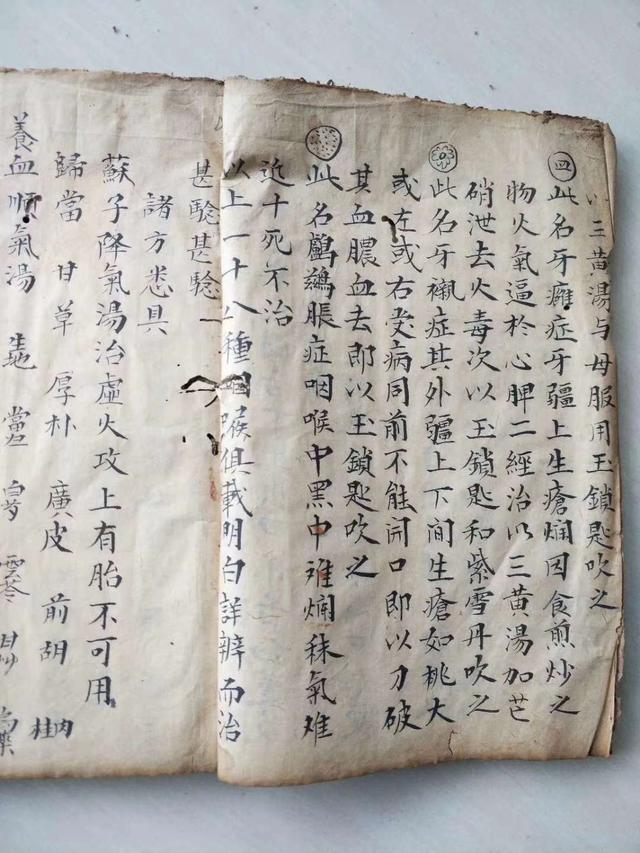 以三黃湯与母服用玉鎖匙吹之
四
此名牙癰症牙疆上生瘡爛因食煎炒之
物火氣逼於心脾二經治以三黃湯加芒
硝泄去火毒次以玉鎖匙和紫雪丹吹之
此名牙襯症其外疆上下間生瘡如桃大
或左或右受病同前不能開口即以刀破
其血膿血去即以玉鎖匙吹之
此名鸕鶿脹症咽喉中黑中难爛秣氣难
近十死不治
以上一十八種咽喉俱載明白詳辨而治
甚騐甚騐
諸方悉具
蘇子降氣湯治虛火攻上有胎不可用
歸當 甘草 厚朴 廣皮 前胡 肉桂
養血順氣湯 生地 當 白芍